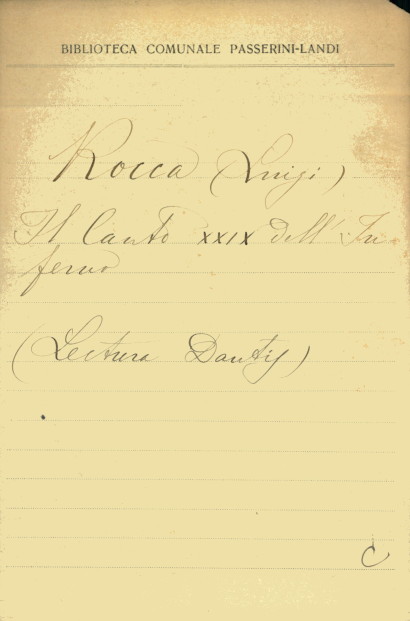 BIBLIOTECA COMUNALE PASSERINI-LANDI
Rocca (Luigi)
Il Canto XXIX dell' In-
ferno
(Lectura Dantis)
C